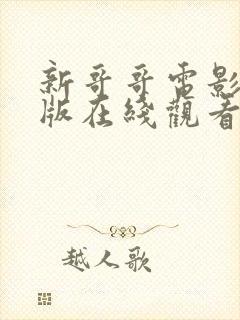 新哥哥電影
版在綫觀看
越人歌